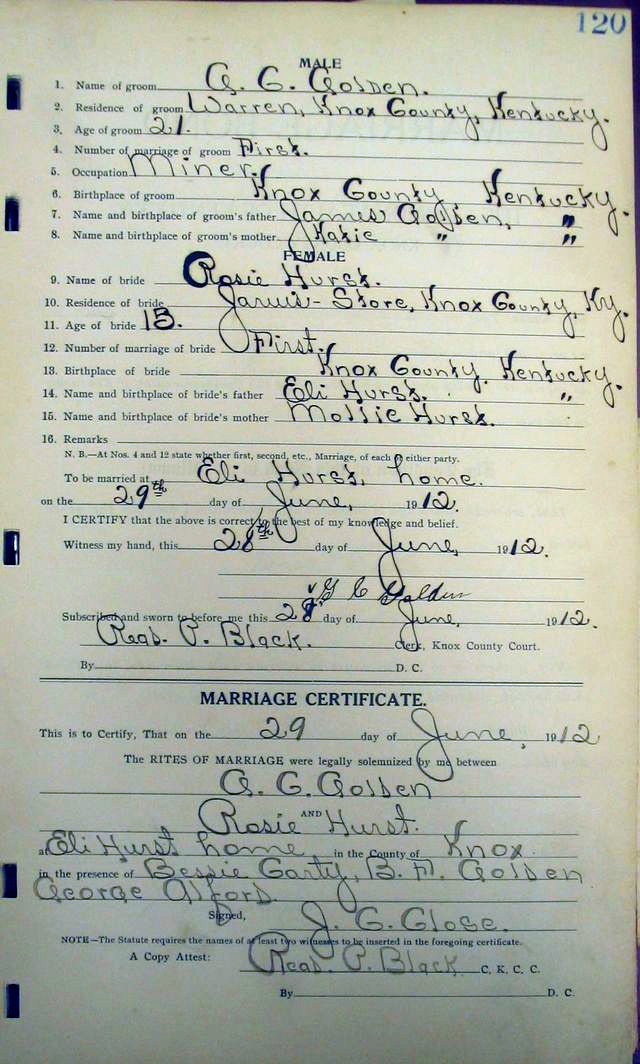 120
MALE
1. Name of groom G. C. Golden.
2. Residence of groom Warren, Knox County, Kentucky.
3. Age of groom 21.
4. Number of marriage of groom First.
5. Occupation Miner.
6. Birthplace of groom Knox County, Kentucky.
7. Name and birthplace of groom's father James Golden, "
8. Name and birthplace of groom's mother Katie " "
FEMALE
9. Name of bride Rosie Hurst.
10. Residence of bride Jarvis-Store, Knox County, Ky.
11. Age of bride 15.
12. Number of marriage of bride First.
13. Birthplace of bride Knox County, Kentucky.
14. Name and birthplace of bride's father Eli Hurst. "
15. Name and birthplace of bride's mother Mollie Hurst.
16. Remarks
N. B.—At Nos. 4 and 12 state whether first, second, etc., Marriage, of each or either party.
To be married at Eli Hurst, home.
on the 29th day of June, 1912.
I CERTIFY that the above is correct to the best of my knowledge and belief.
Witness my hand, this 28th day of June, 1912.
G C Golden
Subscribed and sworn to before me this 28 day of June, 1912.
Read. P. Black. Clerk, Knox County Court.
By D. C.
MARRIAGE CERTIFICATE.
This is to Certify, That on the 29 day of June, 1912
The RITES OF MARRIAGE were legally solemnized by me between
G. C. Golden
AND
Rosie Hurst.
at Eli Hurst home in the County of Knox.
in the presence of Bessie Carty, B. F. Golden
George Alford.
Signed, J. G. Close.
NOTE—The Statute requires the names of at least two witnesses to be inserted in the foregoing certificate.
A Copy Attest: Read. P. Black C. K. C. C.
By D. C.